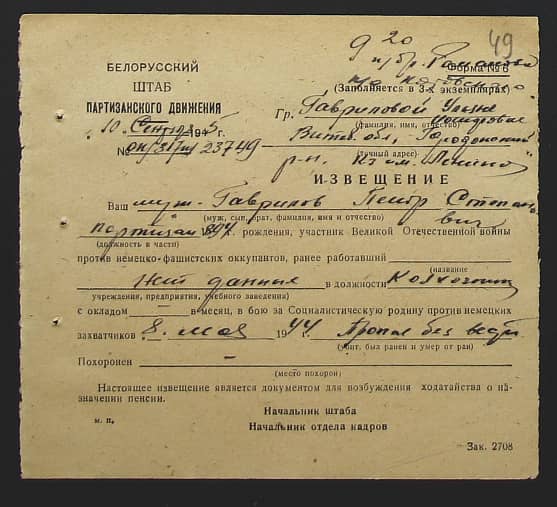 9 20 49
п/бр.
Форма № 6
БЕЛОРУССКИЙ
ШТАБ
ПАРТИЗАНСКОГО ДВИЖЕНИЯ
(Заполняется в 3-х экземплярах)
10 Сентября 1945 г.
№ 23749
Гр. Гавриловой
(фамилия, имя, отчество)
Витеб. обл., Городокский
(точный адрес)
р-н, к-з им. Ленина
ИЗВЕЩЕНИЕ
Ваш муж- Гаврилов Петр Степано
(муж, сын, брат, фамилия, имя и отчество)
вич
партизан 1894 г. рождения, участник Великой Отечественной войны
(должность в части)
против немецко-фашистских оккупантов, ранее работавший
(название
Нет данных в должности Колхозник
учреждения, предприятия, учебного заведения)
с окладом — в месяц, в бою за Социалистическую родину против немецких
захватчиков 8 мая 1944 Пропал без вести
(убит, был ранен и умер от ран)
Похоронен —
(место похорон)
Настоящее извещение является документом для возбуждения ходатайства о на-
значении пенсии.
Начальник штаба
м. п.
Начальник отдела кадров
Зак. 2708